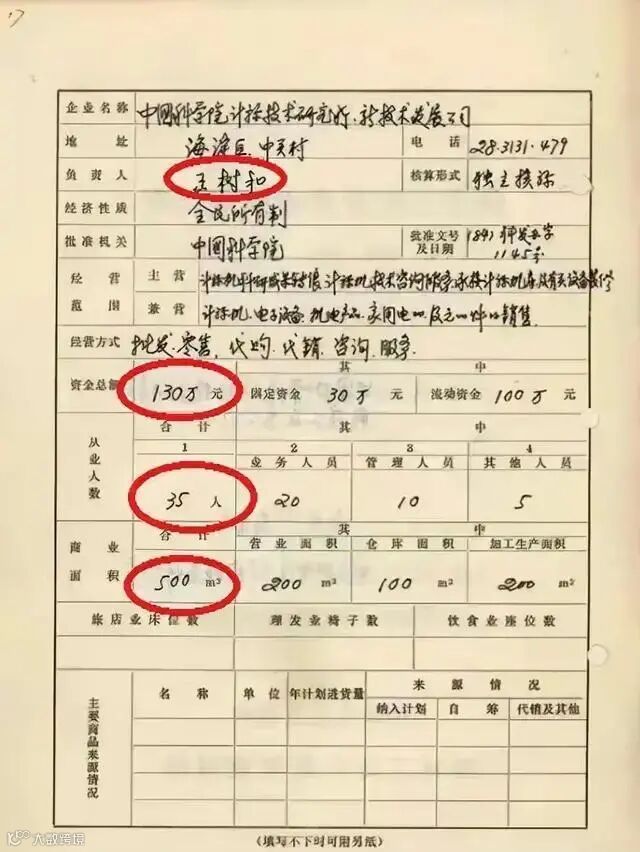 17
企业名称 中国科学院计标技术研究所新技术发展公司
地址 海淀区中关村 电话 28.3131.479
负责人 王树和 核算形式 独立核标
经济性质 全民所有制
批准机关 中国科学院 批准文号及日期 (84)科发计字1145号
经营范围 主营 计标机科研成果转让、计标机技术咨询服务、承接计标机房及有关设备装修
兼营 计标机、电子设备、机电产品、家用电
销售。
经营方式 批发、零售、代购、代销、咨询、服务
资金总额 130万元 其中 固定资金 30万元 流动资金 100万元
从业人数 合计 其中
1 2 3 4
业务人员 管理人员 其他人员
35人 20 10 5
商业面积 合计 其中
营业面积 仓库面积 加工生产面积
500m² 200m² 100m² 200m²
旅店业床位数 理发业椅子数 饮食业座位数
主要商品来源情况 名称 单位 年计划进货量 来源情况
纳入计划 自筹 代销及其他
(填写不下时可用另纸)
大数跨境